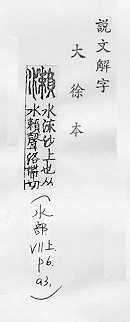 說文解字
大徐本
瀨
水流沙上也从
水賴聲洛帶切
(水部
VII上.
p6.
a3.)